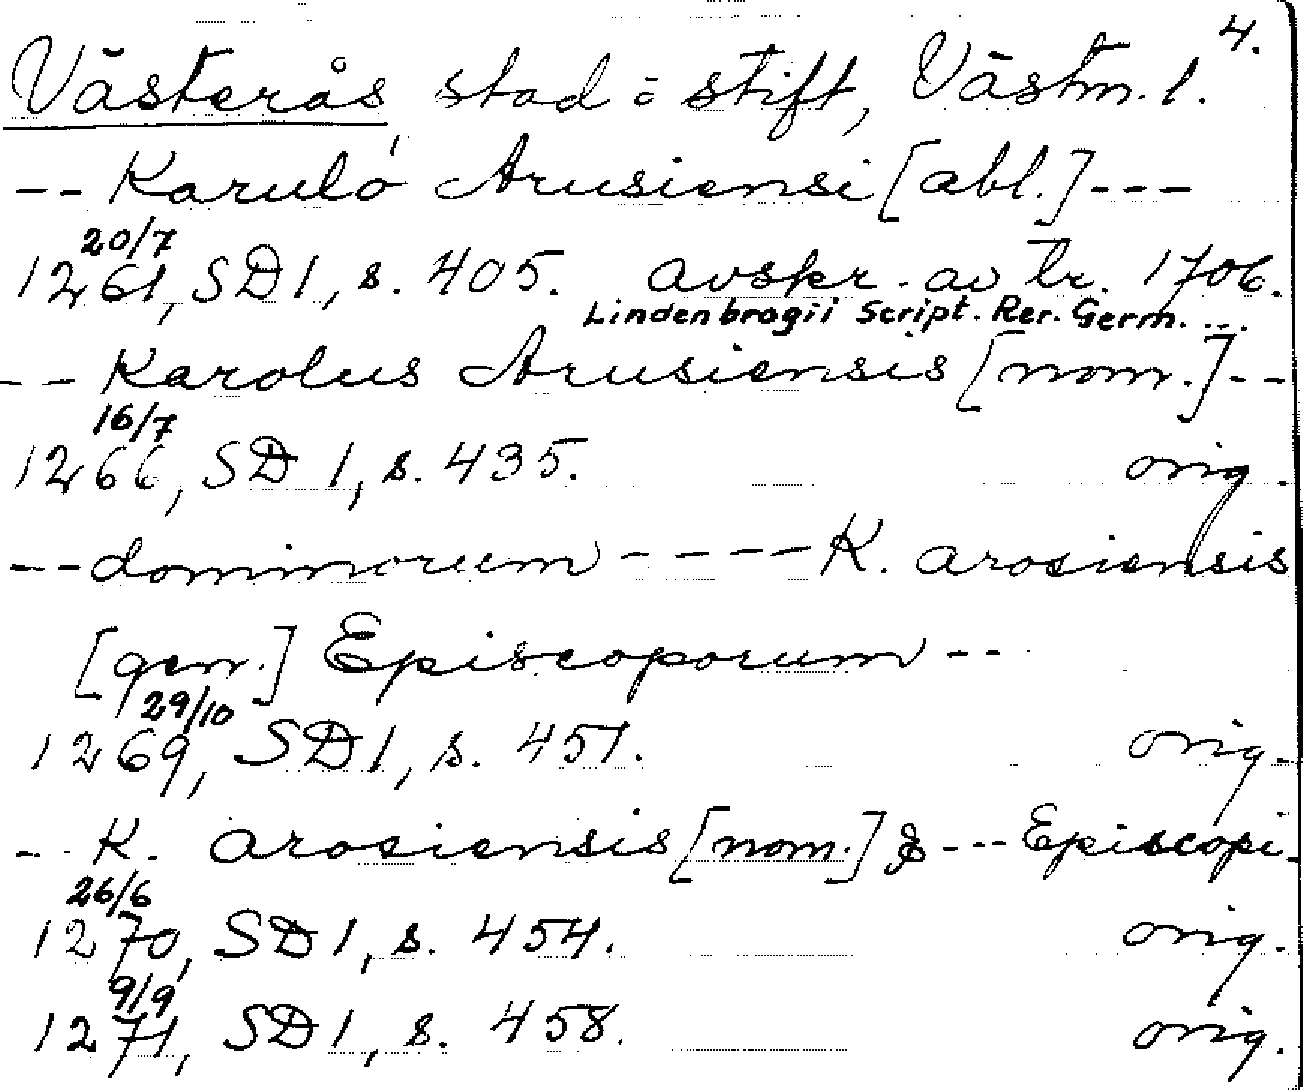 4.
Västerås stad o stift, Västm. l.
-- Karulo Arusiensi [abl.] ---
20/7
1261, SD 1, s. 405. avskr. av tr. 1706.
Lindenbrogii Script. Rer. Germ. ...
-- Karolus Arusiensis [nom.] --
16/7
1266, SD 1, s. 435. orig.
-- dominorum ---- K. arosiensis
[gen.] Episcoporum --
29/10
1269, SD 1, s. 451. orig.
-- K. arosiensis [nom.] & --- Episcopi
26/6
1270, SD 1, s. 454. orig.
9/9
1271, SD 1, s. 458. orig.